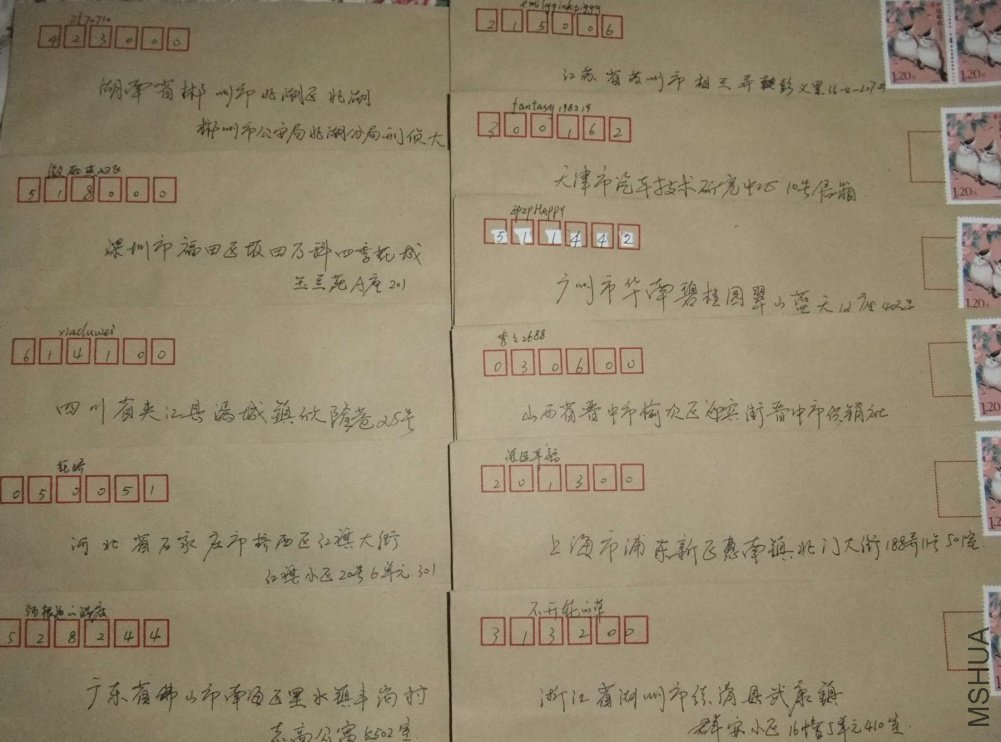 423000
湖南省郴州市北湖区北湖
郴州市公安局北湖分局刑侦大
518000
深圳市福田区坂田万科四季花城
玉兰苑A座201
xiaoluwei
614100
四川省夹江县漹城镇依隆巷25号
050051
河北省石家庄市桥西区红旗大街
红旗小区20号6单元301
528244
广东省佛山市南海区里水镇丰岗村
志高公寓502室
215006
江苏省苏州市相王弄
1.20元
1.20元
fantasy198219
300162
天津市汽车技术研究中心10号信箱
1.20元
3P2PHAPPY
511442
广州市华南碧桂园翠山蓝天12座402号
1.20元
030600
山西省晋中市榆次区迎宾街晋中市供销社
1.20
201300
上海市浦东新区惠南镇北门大街188弄11号501室
1.20
不开花的草
313200
浙江省湖州市德清县武康镇
群安小区16幢5单元410室
MSHUA